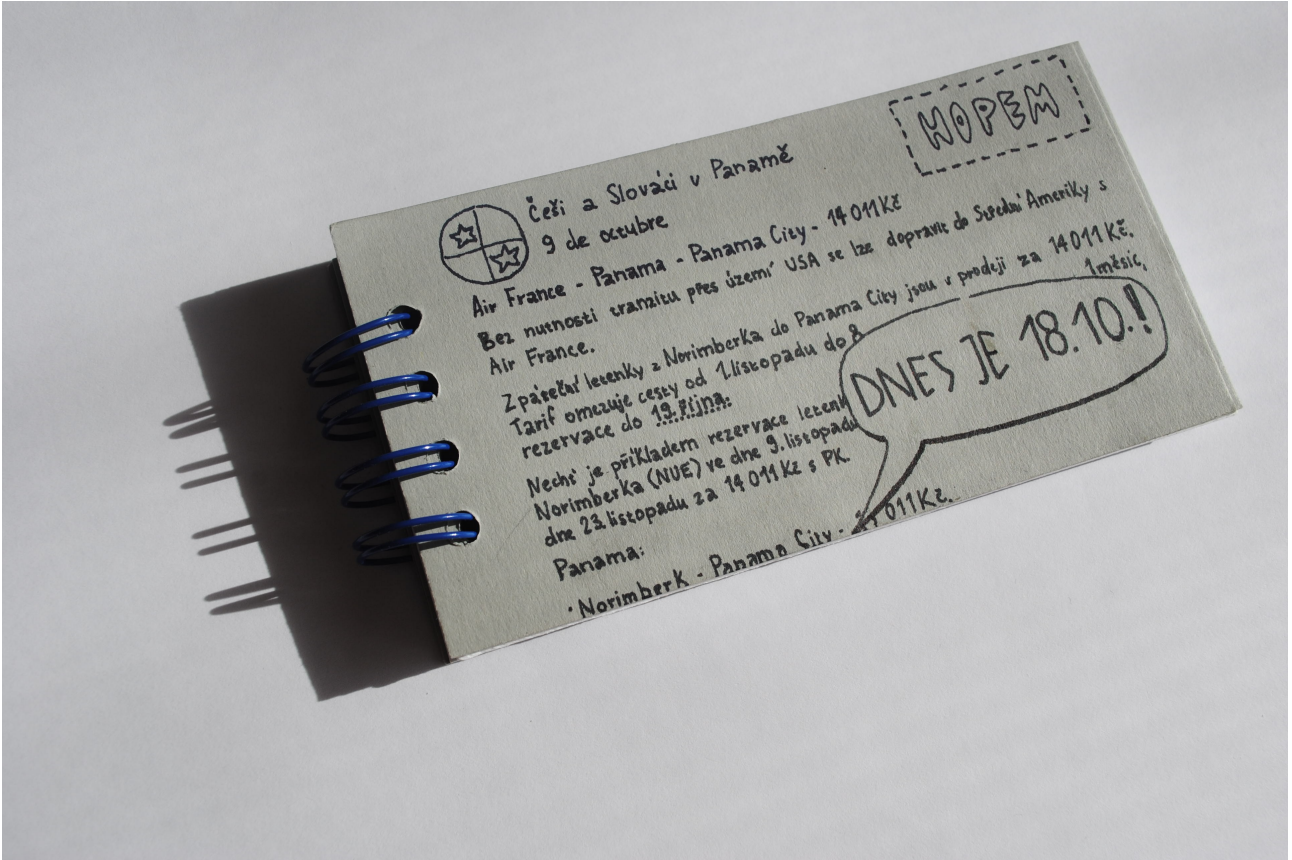 HOPEM
Češi a Slováci v Panamě
9 de octubre
Air France - Panama - Panama City - 14 011 Kč
Bez nutnosti tranzitu přes území USA se lze dopravit do Střední Ameriky s
Air France.
Zpáteční letenky z Norimberka do Panama City jsou v prodeji za 14 011 Kč.
Tarif omezuje cesty od 1. listopadu do 8. 1 měsíc,
rezervace do 19. října.
DNES JE 18.10.!
Nechť je příkladem rezervace letenk
Norimberka (NUE) ve dne 9. listopadu
dne 23. listopadu za 14 011 Kč s PK.
Panama:
· Norimberk - Panama City - 011 Kč.